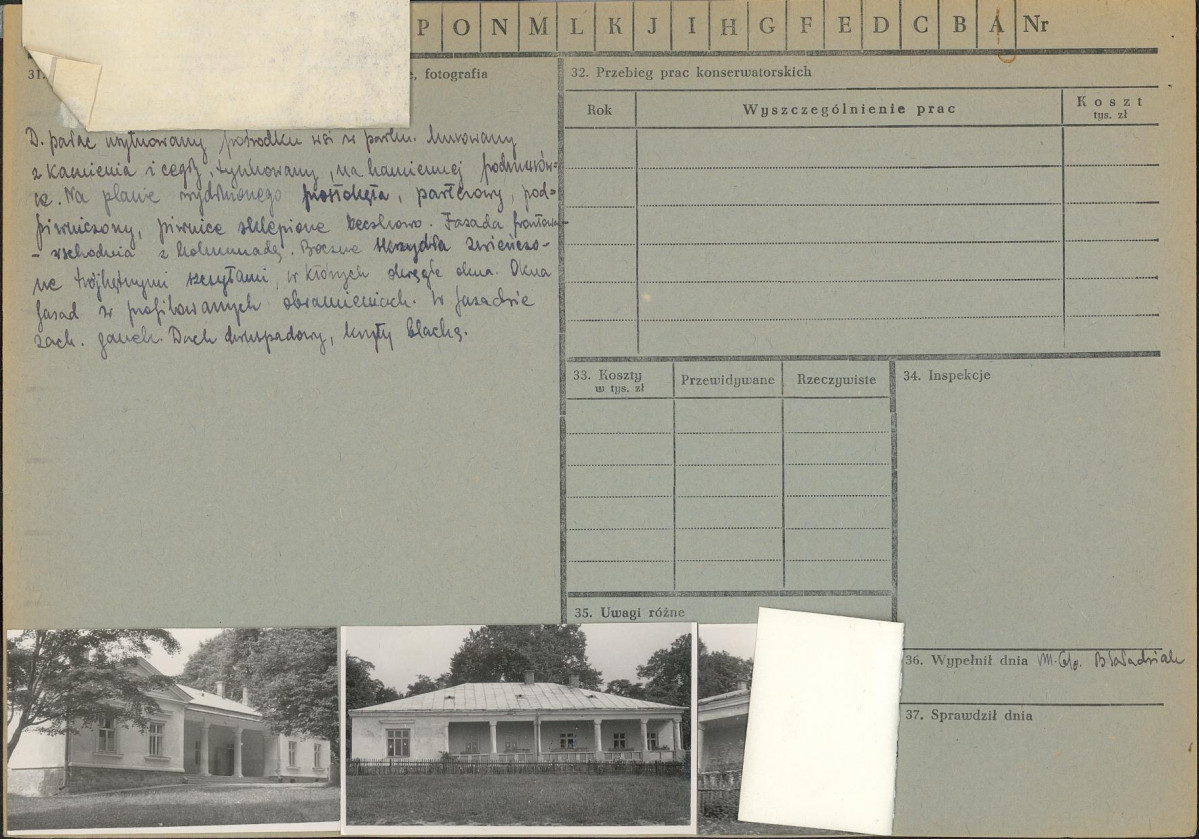 P O N M L K J I H G F E D C B A Nr
31. , fotografia
D. pałac usytuowany pośrodku wsi w parku. Murowany
z kamienia i cegły, tynkowany, na kamiennej podmurów-
ce. Na planie wydłużonego prostokąta, parterowy, pod-
piwniczony, piwnice sklepione beczkowo. Fasada frontowa
- wschodnia z kolumnadą. Boczne skrzydła zwieńczo-
ne trójkątnymi szczytami, w których okrągłe okna. Okna
fasad w profilowanych obramieniach. W fasadzie
zach. ganek. Dach dwuspadowy, kryty blachą.
32. Przebieg prac konserwatorskich
Rok Wyszczególnienie prac Koszt
tys. zł
33. Koszty
w tys. zł
Przewidywane Rzeczywiste
34. Inspekcje
35. Uwagi różne
36. Wypełnił dnia
37. Sprawdził dnia